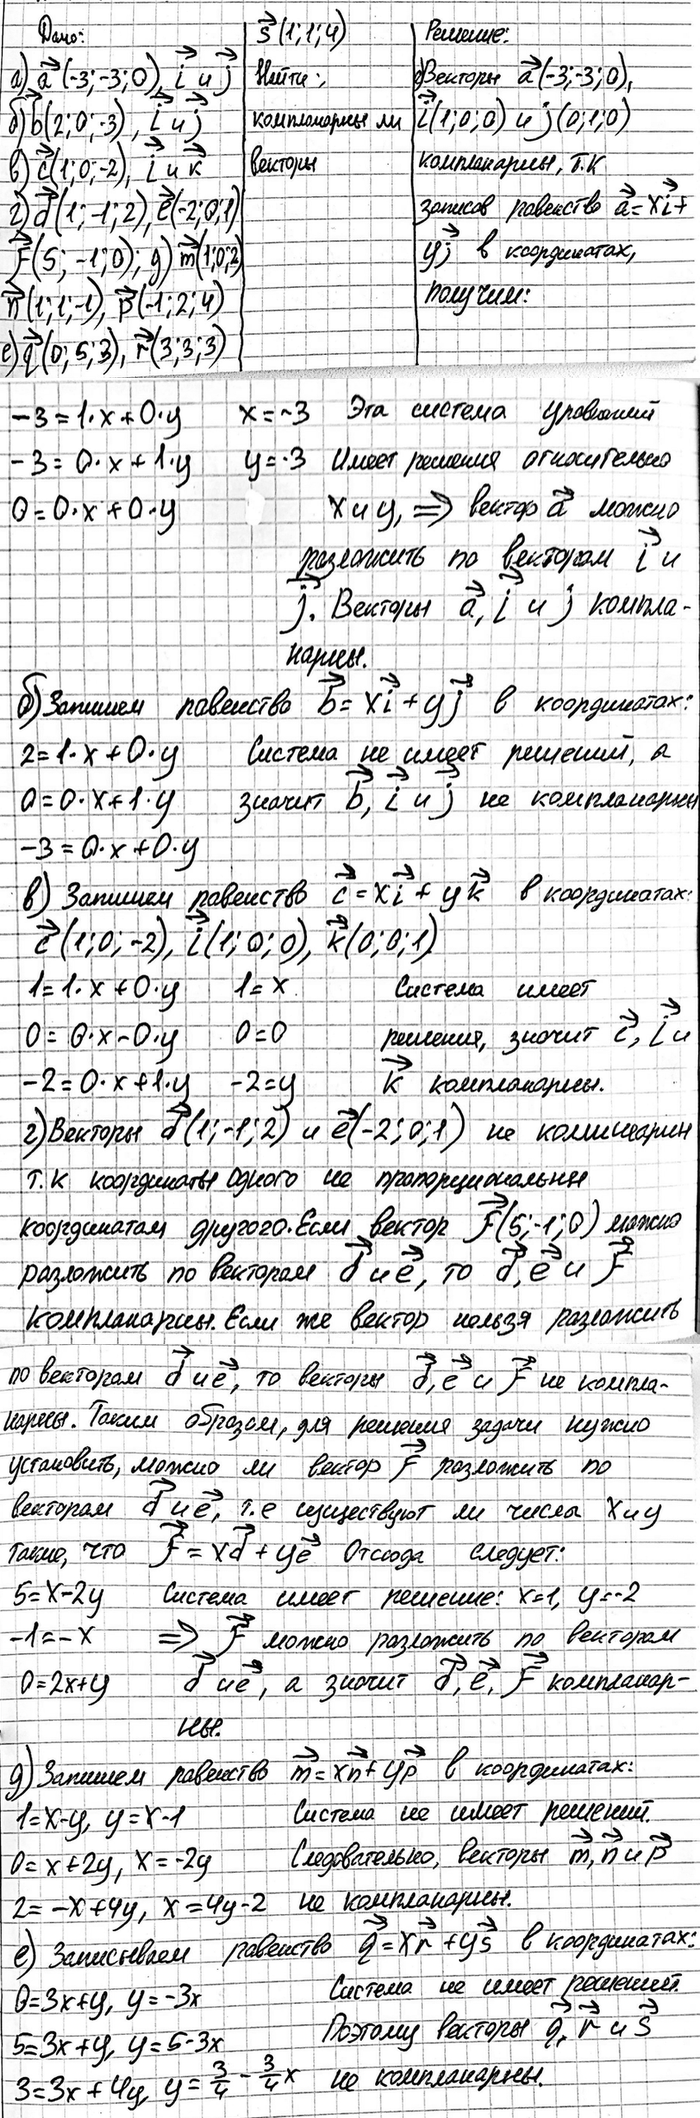 Дано:
а) a (-3; -3; 0), i и j
б) b (2; 0; -3), i и j
в) c (1; 0; -2), i и k
г) d (1; -1; 2), e (-2; 0; 1)
f (5; -1; 0); д) m (1; 0; 2)
n (1; 1; -1), p (-1; 2; 4)
е) q (0; 5; 3), r (3; 3; 3)
s (1; 1; 4)
Найти:
компланарны ли
векторы
Решение:
а) Векторы a (-3; -3; 0),
i (1; 0; 0) и j (0; 1; 0)
компланарны, т.к
записав равенство a = xi +
yj в координатах,
получим:
-3 = 1·x + 0·y x = -3 Эта система уравнений
-3 = 0·x + 1·y y = -3 Имеет решения относительно
0 = 0·x + 0·y x и y, => вектор a можно
разложить по векторам i и
j. Векторы a, i и j компла-
нарны.
б) Запишем равенство b = xi + yj в координатах:
2 = 1·x + 0·y Система не имеет решений, а
0 = 0·x + 1·y значит b, i и j не компланарны
-3 = 0·x + 0·y
в) Запишем равенство c = xi + yk в координатах:
c (1; 0; -2), i (1; 0; 0), k (0; 0; 1)
1 = 1·x + 0·y 1 = x Система имеет
0 = 0·x - 0·y 0 = 0 решения, значит c, i и
-2 = 0·x + 1·y -2 = y k компланарны.
г) Векторы d (1; -1; 2) и e (-2; 0; 1) не
т.к координаты одного не пропорциональны
координатам другого. Если вектор f (5; -1; 0) можно
разложить по векторам d и e, то d, e и f
компланарны. Если же вектор нельзя разложить
по векторам d и e, то векторы d, e и f не компла-
нарны. Таким образом, для решения задачи нужно
установить, можно ли вектор f разложить по
векторам d и e, т.е существуют ли числа x и y
такие, что f = xd + ye Отсюда следует:
5 = x - 2y Система имеет решение: x = 1, y = -2
-1 = -x => f можно разложить по векторам
0 = 2x + y d и e, а значит d, e, f компланар-
ны.
д) Запишем равенство m = xn + yp в координатах:
1 = x - y, y = x - 1 Система не имеет решений.
0 = x + 2y, x = -2y Следовательно, векторы m, n и p
2 = -x + 4y, x = 4y - 2 не компланарны.
е) Записываем равенство q = xr + ys в координатах:
0 = 3x + y, y = -3x Система не имеет решений.
5 = 3x + y, y = 5 - 3x Поэтому векторы q, r и s
3 = 3x + 4y, y = 3/4 - 3/4 x не компланарны.